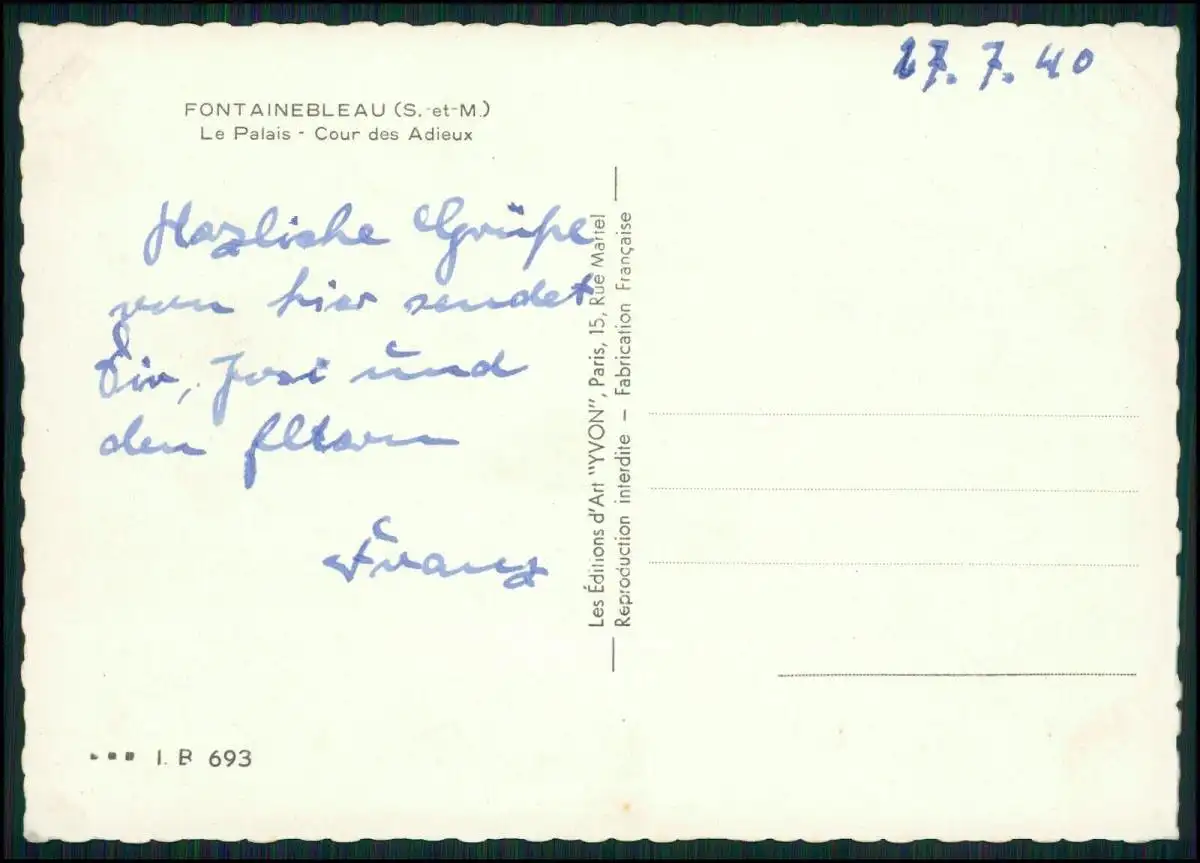 27. 7. 40
FONTAINEBLEAU (S.-et-M.)
Le Palais - Cour des Adieux
Herzliche Grüße
von hier sendet
Dir, Josi und
den Eltern
Franz
Les Éditions d'Art "YVON", Paris, 15, Rue Martel
Reproduction interdite — Fabrication Française
I. B 693